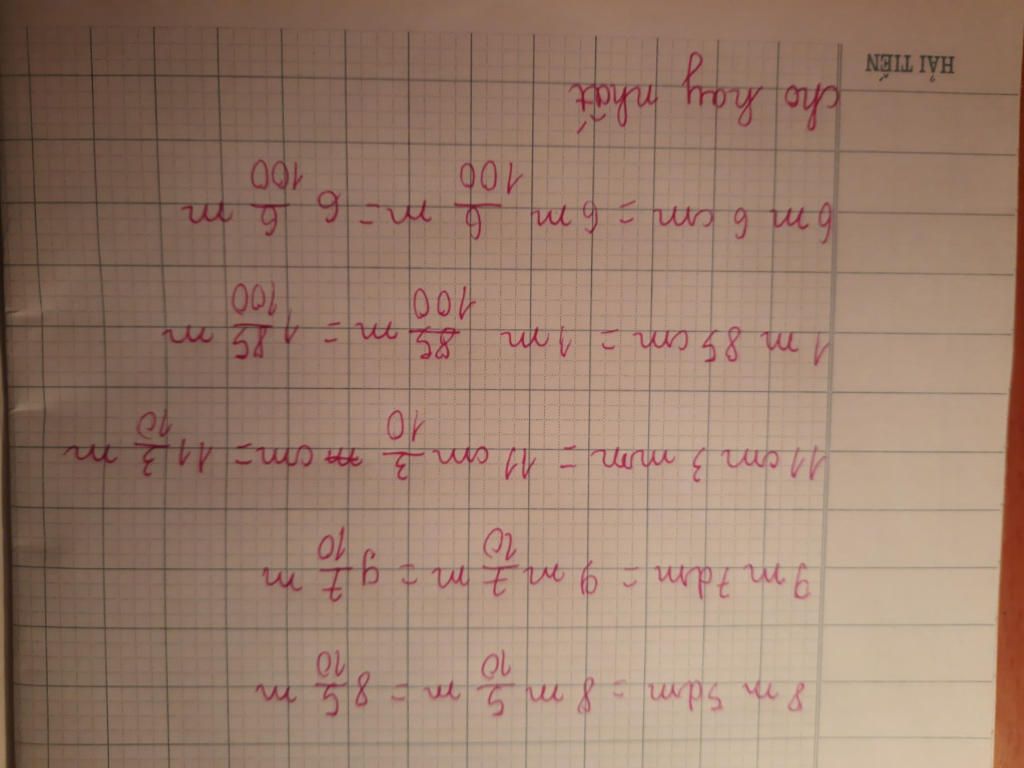 8 m 5dm = 8 m 5/10 m = 8 5/10 m
9 m 7dm = 9 m 7/10 m = 9 7/10 m
11 cm 3 mm = 11 cm 3/10 cm = 11 3/10 m
1 m 85 cm = 1 m 85/100 m = 1 85/100 m
6 m 6 cm = 6 m 6/100 m = 6 6/100 m
cho hay nhất
HẢI TIẾN